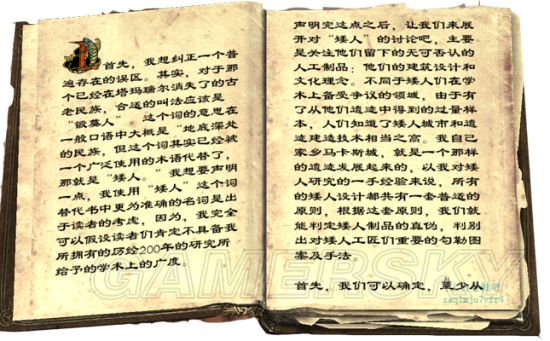 首先，我想纠正一个普
遍存在的误区。其实，对于那
个已经在塔玛瑞尔消失了的古
老民族，合适的叫法应该是
“锻莫人”。这个词的意思在
一般口语中大概是“地底深处
的民族，但这个词其实已经被
一个广泛使用的术语代替了，
那就是“矮人。”我想要声明
一点，我使用“矮人”这个词
替代书中更为准确的名词是出
于读者的考虑，因为，我完全
可以假设读者们肯定不具备我
所拥有的历经200年的研究所
给予的学术上的广度。
声明完这点之后，让我们来展
开对“矮人”的讨论吧，主要
是关注他们留下的无可否认的
人工制品：他们的建筑设计和
文化理念。不同于矮人们在学
术上备受争议的领域，由于有
了从他们遗迹中得到的过量样
本，人们知道了矮人城市和遗
迹建造技术相当之高。我自己
家乡马卡斯城，就是一个那样
的遗迹发展起来的，以我对矮
人研究的一手经验来说，所有
的矮人设计都共有一套普适的
原则，根据这套原则，我们就
能判定矮人制品的真伪，判别
出对矮人工匠们重要的勾勒图
案及手法。
首先，我们可以确定，至少从
GAMERSKY